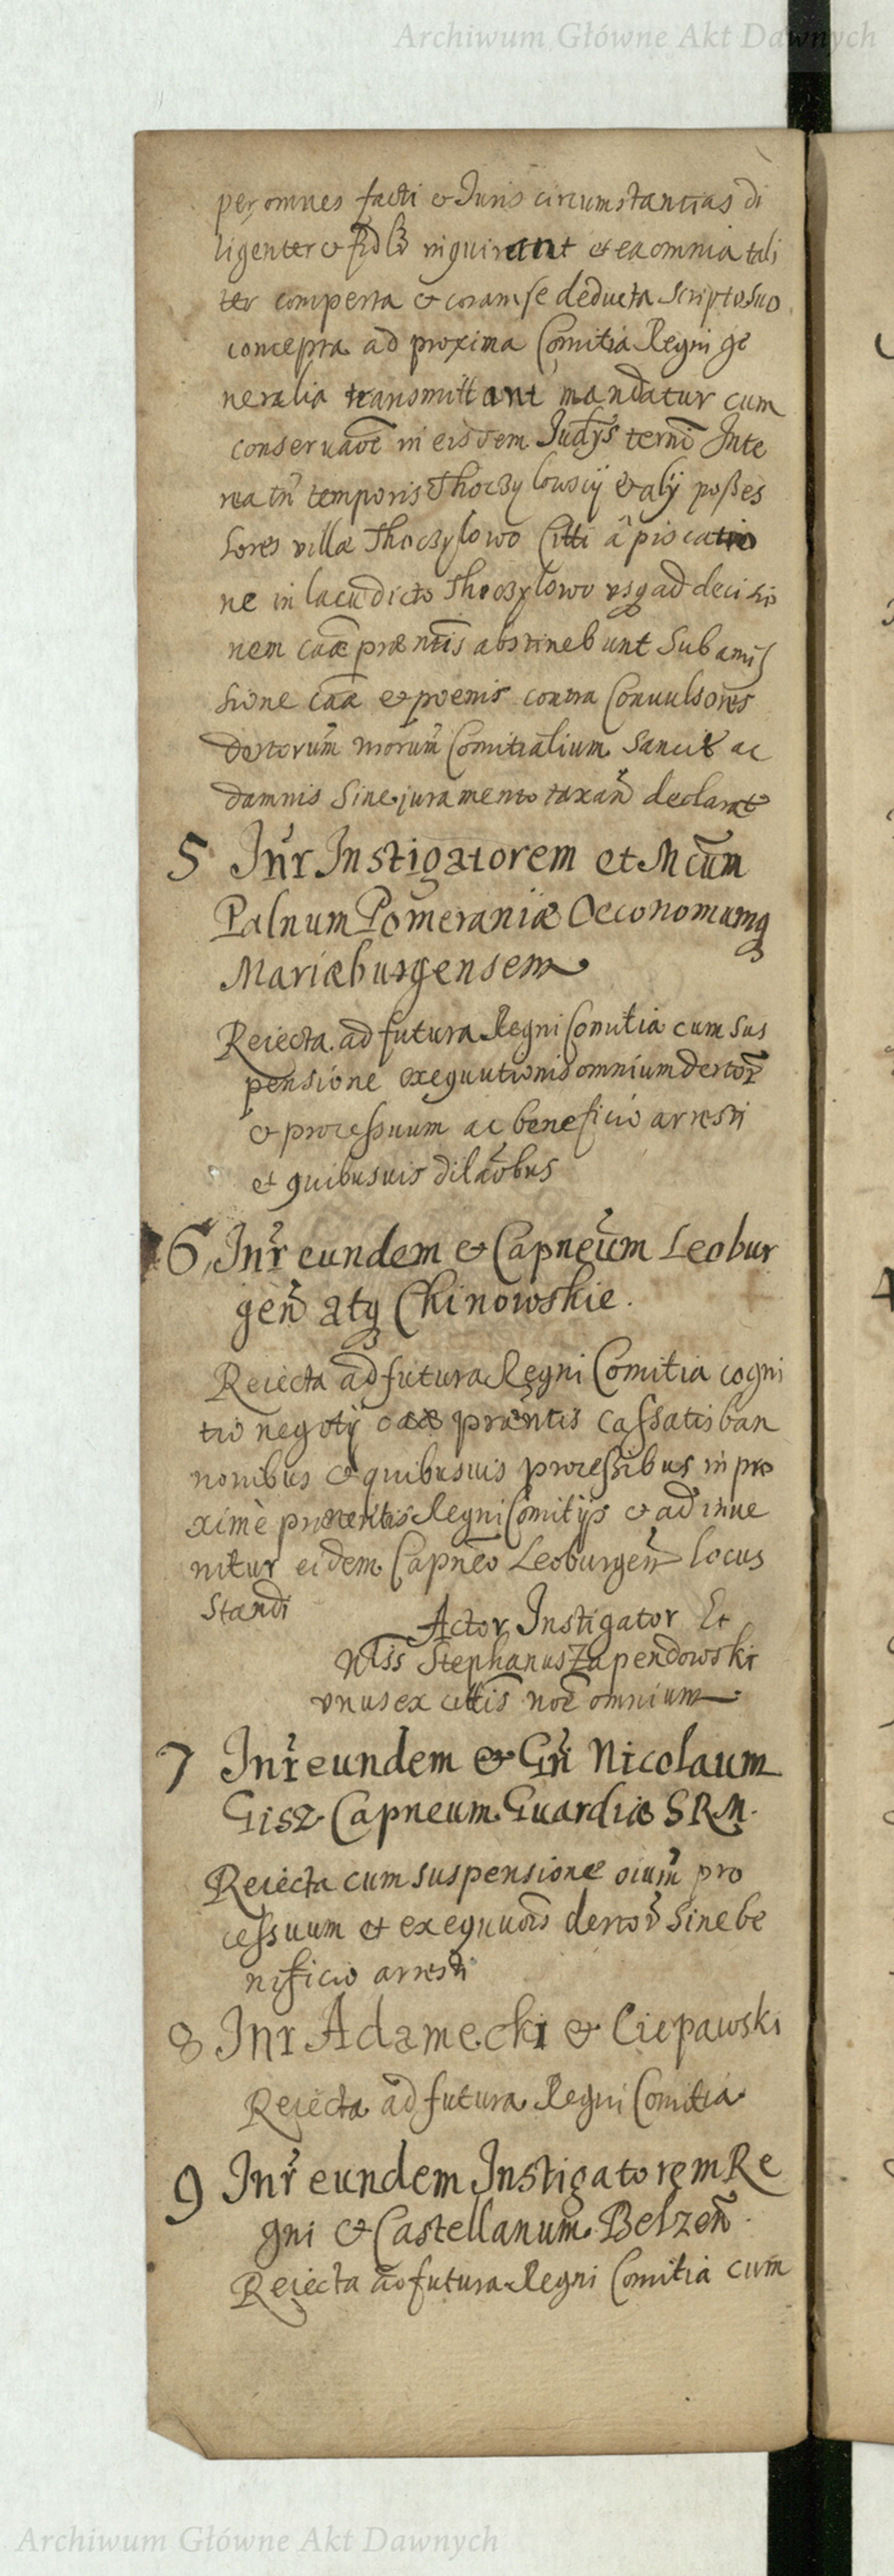 Archiwum Główne Akt Dawnych
per omnes facti et Juris circumstantias di
ligenter et fidlr inquirant et ea omnia tali
ter comperta et coram se deducta scripto suo
concepta ad proxima Comitia Regni ge
neralia transmittant mandatur cum
conservaoe in eisdem Judys termi Inte
rea tn temporis Thoczylowscij et alij posses
sores villæ Thoczylowo Citti à piscatio
ne in lacu dicto Thoczylowo usq ad decisio
nem caæ præntis abstinebunt sub amis
sione caæ et poenis contra Convulsores
dertorum morum Comitialium sancit ac
damnis sine juramento taxan declarat
5 Inr Instigatorem et Mcum
Palnum Pomeraniæ Oeconomumq
Mariæburgensem
Reiecta ad futura Regni Comitia cum sus
pensione exequutionis omnium dertor
et processuum ac beneficio arresti
et quibusvis dilaobus
6 Inr eundem et Capneum Leobur
gen atq Chinowskie.
Reiecta ad futura Regni Comitia cogni
tio negotij caæ præntis cassatis ban
nonibus et quibusvis processibus in pro
ximè præteritis Regni Comitijs et ad inve
nitur eidem Capneo Leoburgen locus
standi
Actor Instigator Et
Nlss Stephanus Zapendowski
unus ex cittis noe omnium
7 Inr eundem et Gn Nicolaum
Gisz Capneum Guardiæ S R M.
Reiecta cum suspensione oium pro
cessuum et exequuois dertor sine be
nificio arresti
8 Inr Adamecki et Ciepawski
Reiecta ad futura Regni Comitia
9 Inr eundem Instigatorem Re
gni et Castellanum Belzen.
Reiecta ad futura Regni Comitia cum
Archiwum Główne Akt Dawnych